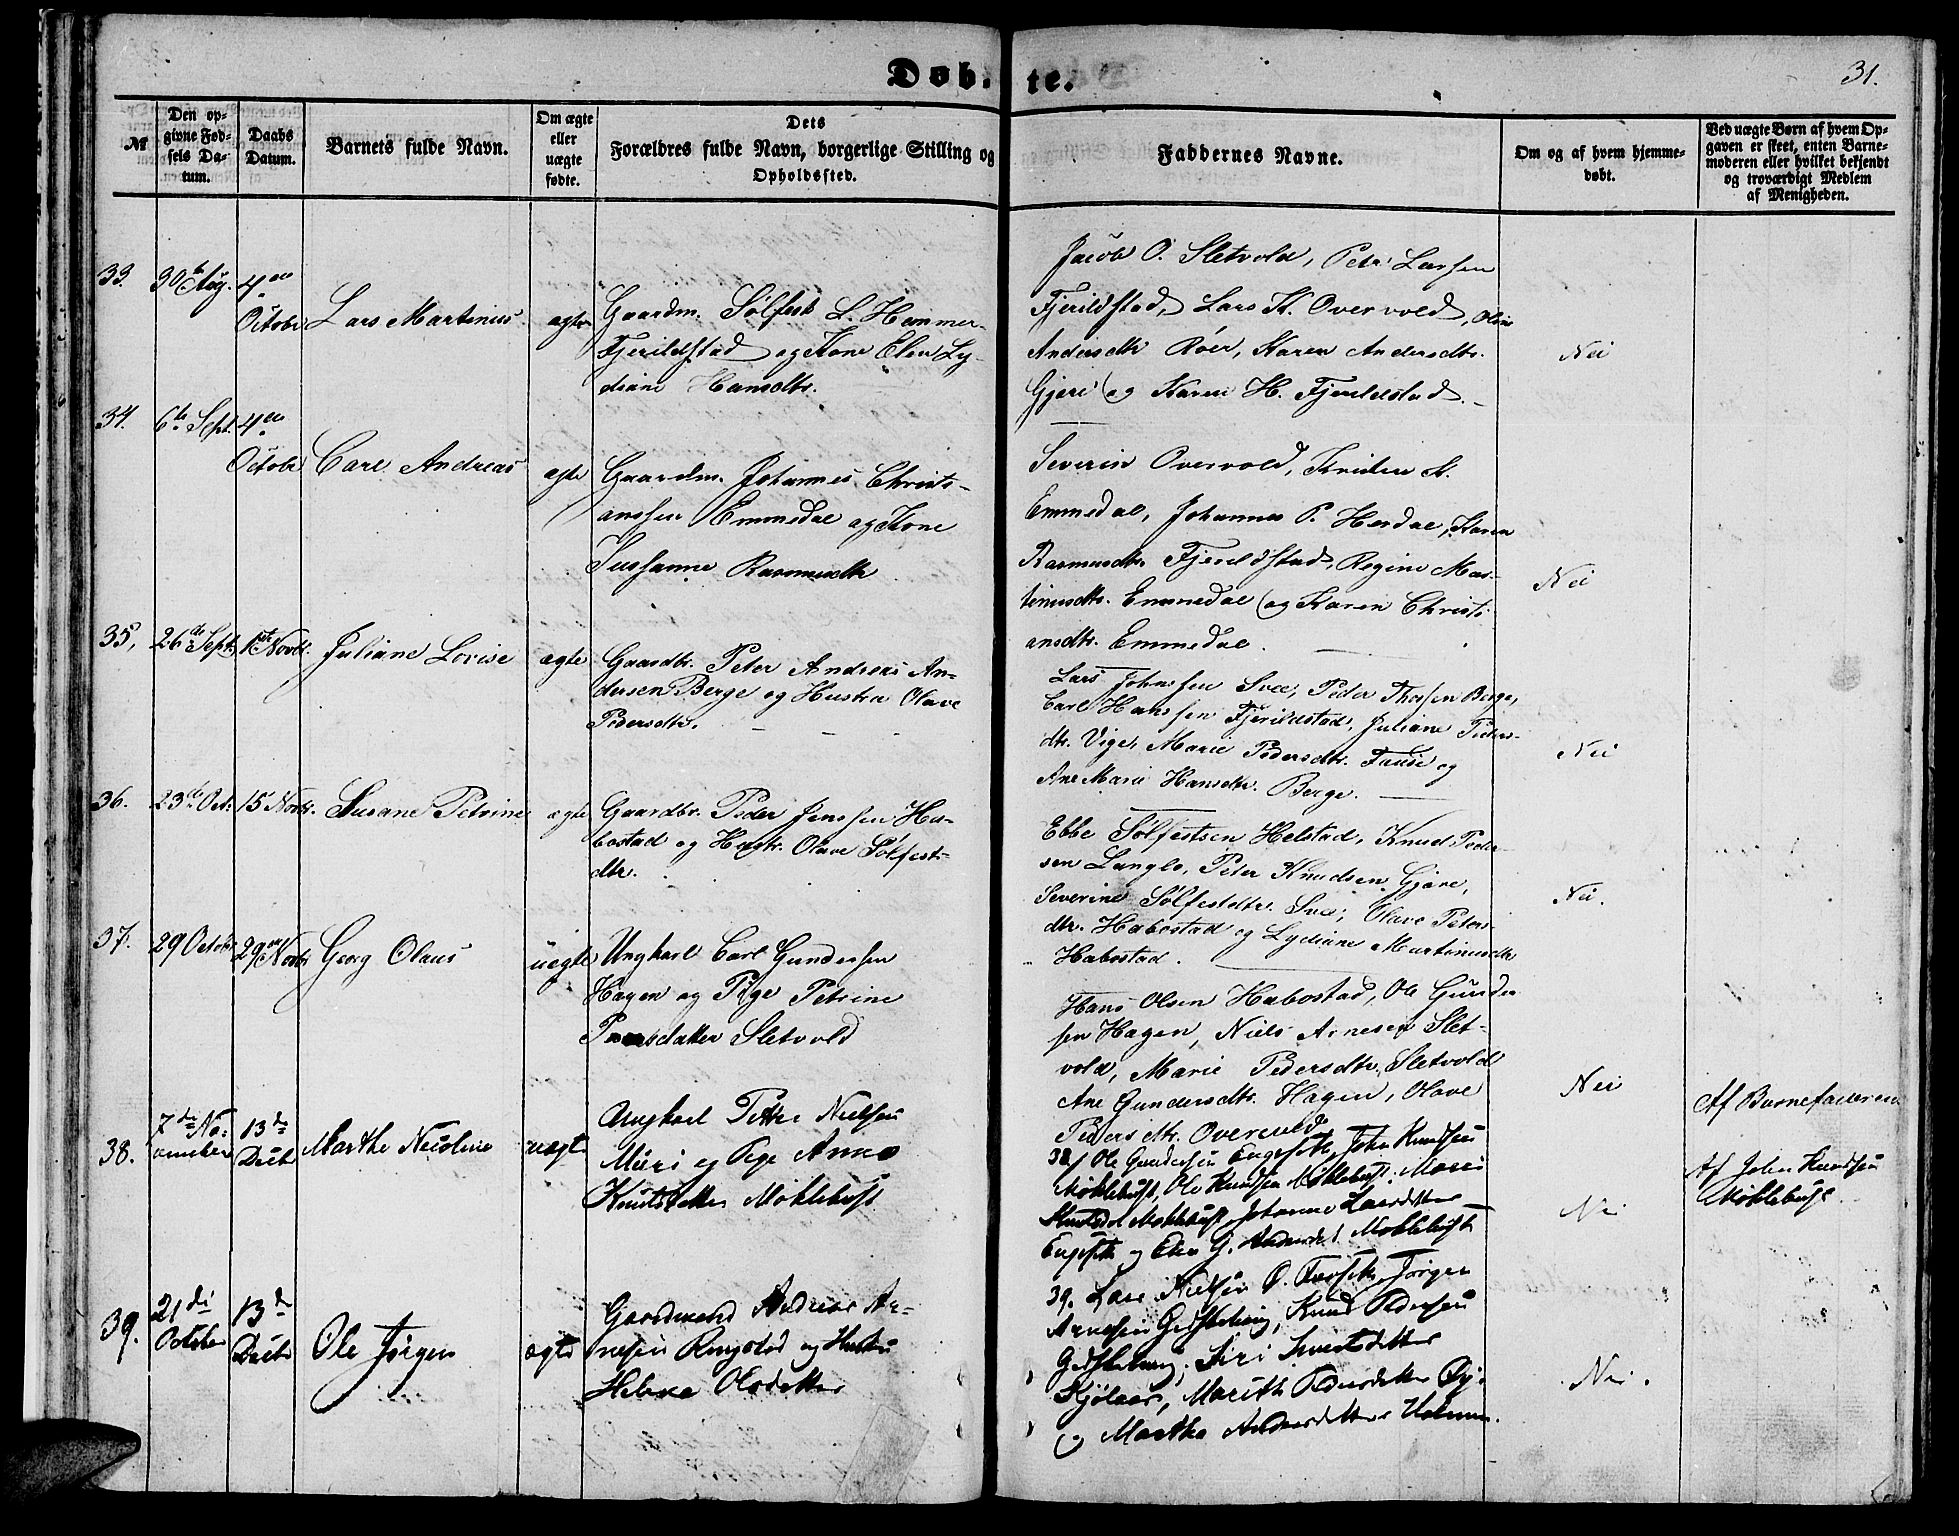 Døbte.
31.
№
Den opgivne Fødsels Datum.
Daabs Datum.
Barnets fulde Navn.
Om ægte eller uægte fødte.
Dets Forældres fulde Navn, borgerlige Stilling og Opholdssted.
Faddernes Navne.
Om og af hvem hjemmedøbt.
Ved uægte Børn af hvem Opgaven er skeet, enten Barnemoderen eller hvilket bekjendt og troværdigt Medlem af Menigheden.
33. 30te Aug. 4de Octobr Lars Martinus ægte
Gaardm. Sølfest L. Hemmer-
Fjerildstad og Kone Elen Ly-
diane Hansdtr.
Jacob O. Sletvold, Petr Larsen
Fjerildstad, Lars K. Overvold, Oline
Andersdtr Røer, Karen Andersdtr.
Gjære og Karen H. Fjerildstad.
Nei
34. 6te Sept. 4de Octobr Carl Andreas ægte
Gaardm. Johannes Christi-
anssen Emmedal og Kone
Sussanne Rasmusdtr
Severin Overvold, A.
Emmedal, Johannes P. Herdal, Karen
Rasmusdtr. Fjerildstad, Regine Mar-
tinusdtr. Emmedal og Karen Christi-
ansdtr. Emmedal.
Nei
35, 26de Sept. 1ste Novbr. Juliane Lovise ægte
Gaardbr. Peter Andreas An-
dersen Berge og Hustru Olave
Pedersdtr.
Lars Johnssen Svee, Peder Berge,
Carl Hanssen Fjerildstad, Juliane Peders-
dtr. Vige, Marie Pedersdtr. og
Ane Marie Hansdtr. Berge.
Nei
36. 23de Oct. 15 Novbr. Susane Petrine ægte
Gaardbr. Peder Jenssen Ha-
bostad og Hustr. Olave Sølfests-
dtr.
Ebbe Sølfestsen Helstad, Knud Peder-
sen Langlo, Peter Knudsen Gjøre,
Severine Sølfestdtr. Svee, Olave Peters-
dtr. Habostad og Lydiane Martinusdtr
Habostad.
Nei.
37. 29 Octobr 29de Novbr Georg Olaus uægte
Ungkarl Carl Gundersen
Hagen og Pige Petrine
Sletvold
Hans Olsen Habostad, Ole Gunder
sen Hagen, Niels Arnesen Slet-
vold, Marie Pedersdtr. Sletvold
Ane Gundersdtr. Hagen, Olave
Pedersdtr. Overvold
Nei
Af Barnefaderen
38. 7de No-
vember 13de Decbr Marthe Nicoline uægte
Ungkarl Petter Nielsen
Muri og Pige Anne
Knutsdatter Møklebust
38/ Ole Gundersen Engeset, John Knudsen
Møklebust, Ole Knudsen Møklebust, Mari
Knutsd. Møklebust, Johanne Larsdatter
Engeset og Elen G. Andersd. Møklebust
Nei
Af John Knudsen
Møklebust.
39. 21de
October 13de Decbr Ole Jørgen ægte
Gaardmand Andreas Ar-
nesen Ringstad og Hustru
Helene Olsdatter
39. Lars Nielsen Ø. Jørgen
Arnesen Knud Pedersen
Siri Sivertsdatter
Marith Pedersdatter
og Marthe Andersdatter
Nei.